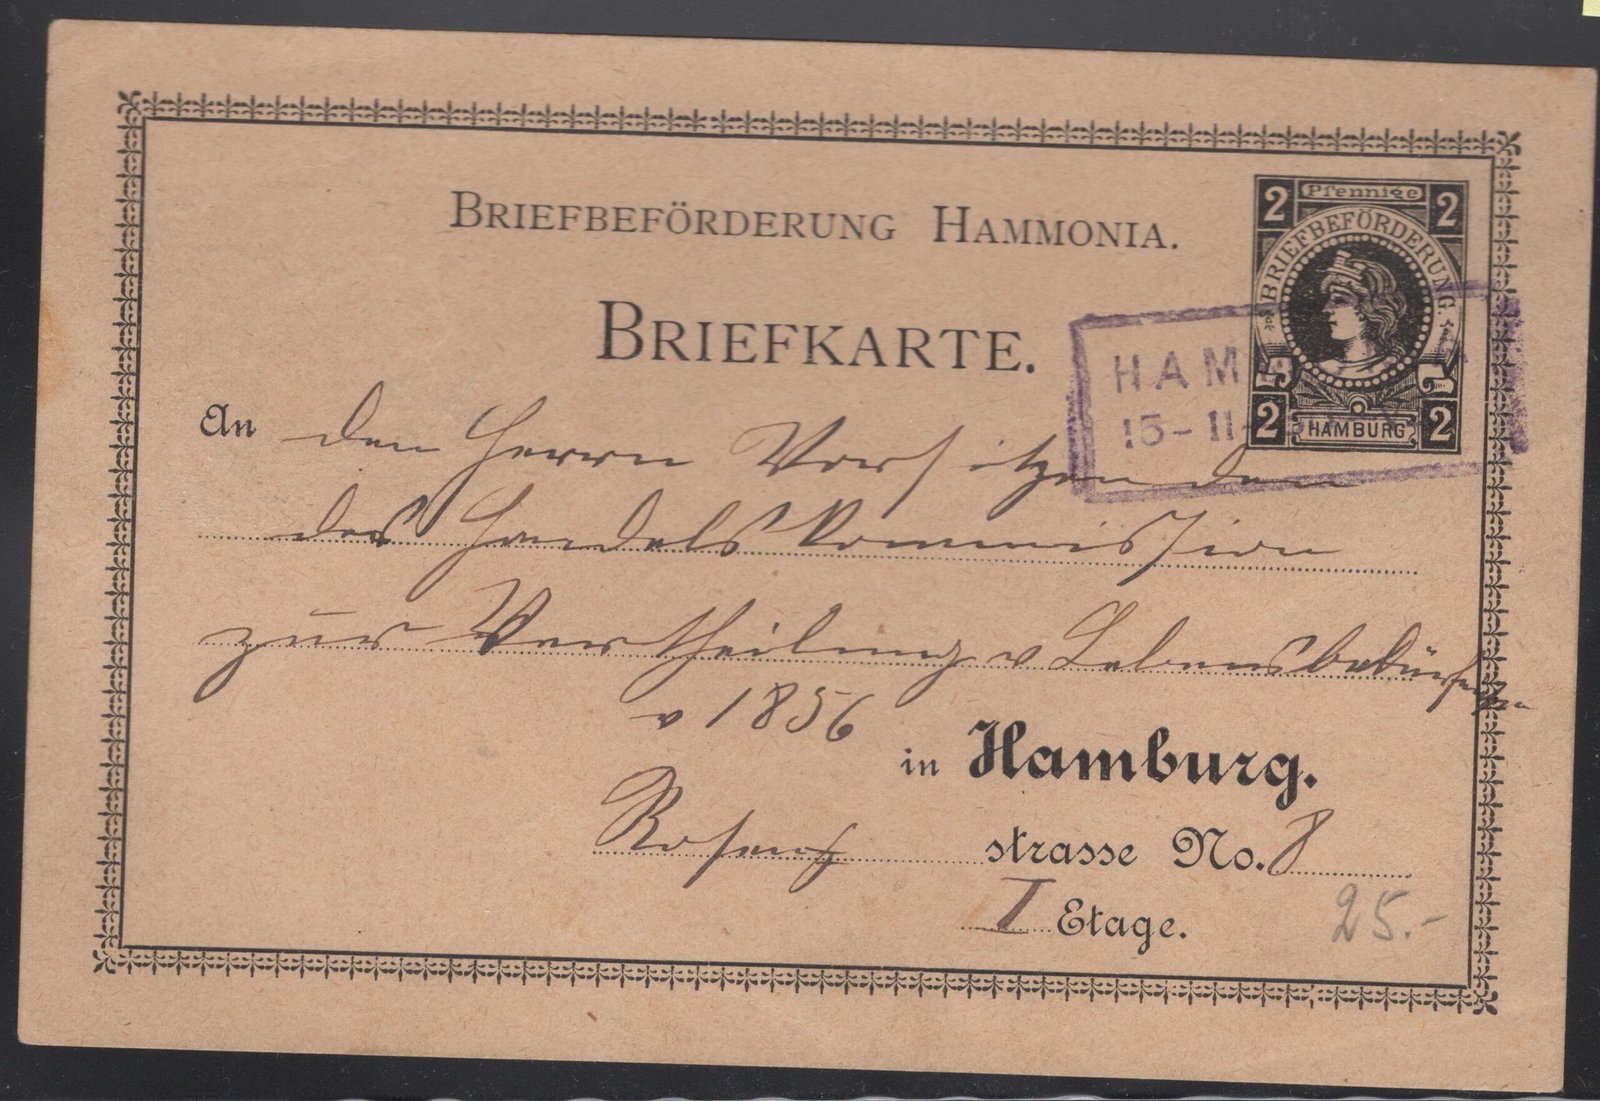 BRIEFBEFÖRDERUNG HAMMONIA.
2 Pfennige 2
BRIEFBEFÖRDERUNG.
2 HAMBURG 2
BRIEFKARTE.
HAM
15-11-
An den Herrn Vorsitzenden
der Handels Kommission
zur Vertheilung v Lebensbedürfnissen
v 1856
in Hamburg.
Rosen strasse No. 8
I Etage.
25.-